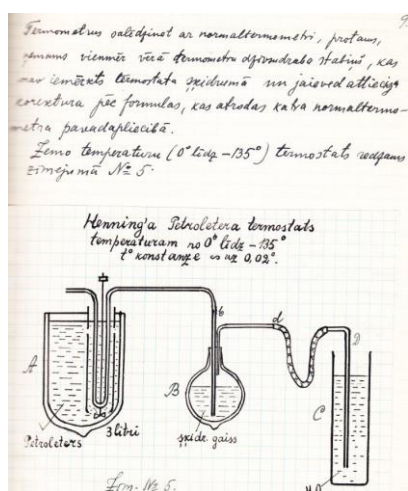 9
Termometrus salīdzinot ar normaltermometri, protams,
ņemams vienmēr vērā termometra dzīvsudraba stabiņš, kas
nav iemērkts termostata šķidrumā un jāieved attiecīg
korektura pēc formulas, kas atrodas katra normaltermo-
metra pavadapliecībā.
Zemo temperaturu (0° līdz -135°) termostats redzams
zīmējumā № 5.
Henning'a Petroletera termostats
temperaturam no 0° līdz -135°
t° konstanze uz 0,02°.
A
b
d
D
B
C
Petroleters
3 litri
šķidr. gaiss
Zīm. № 5.